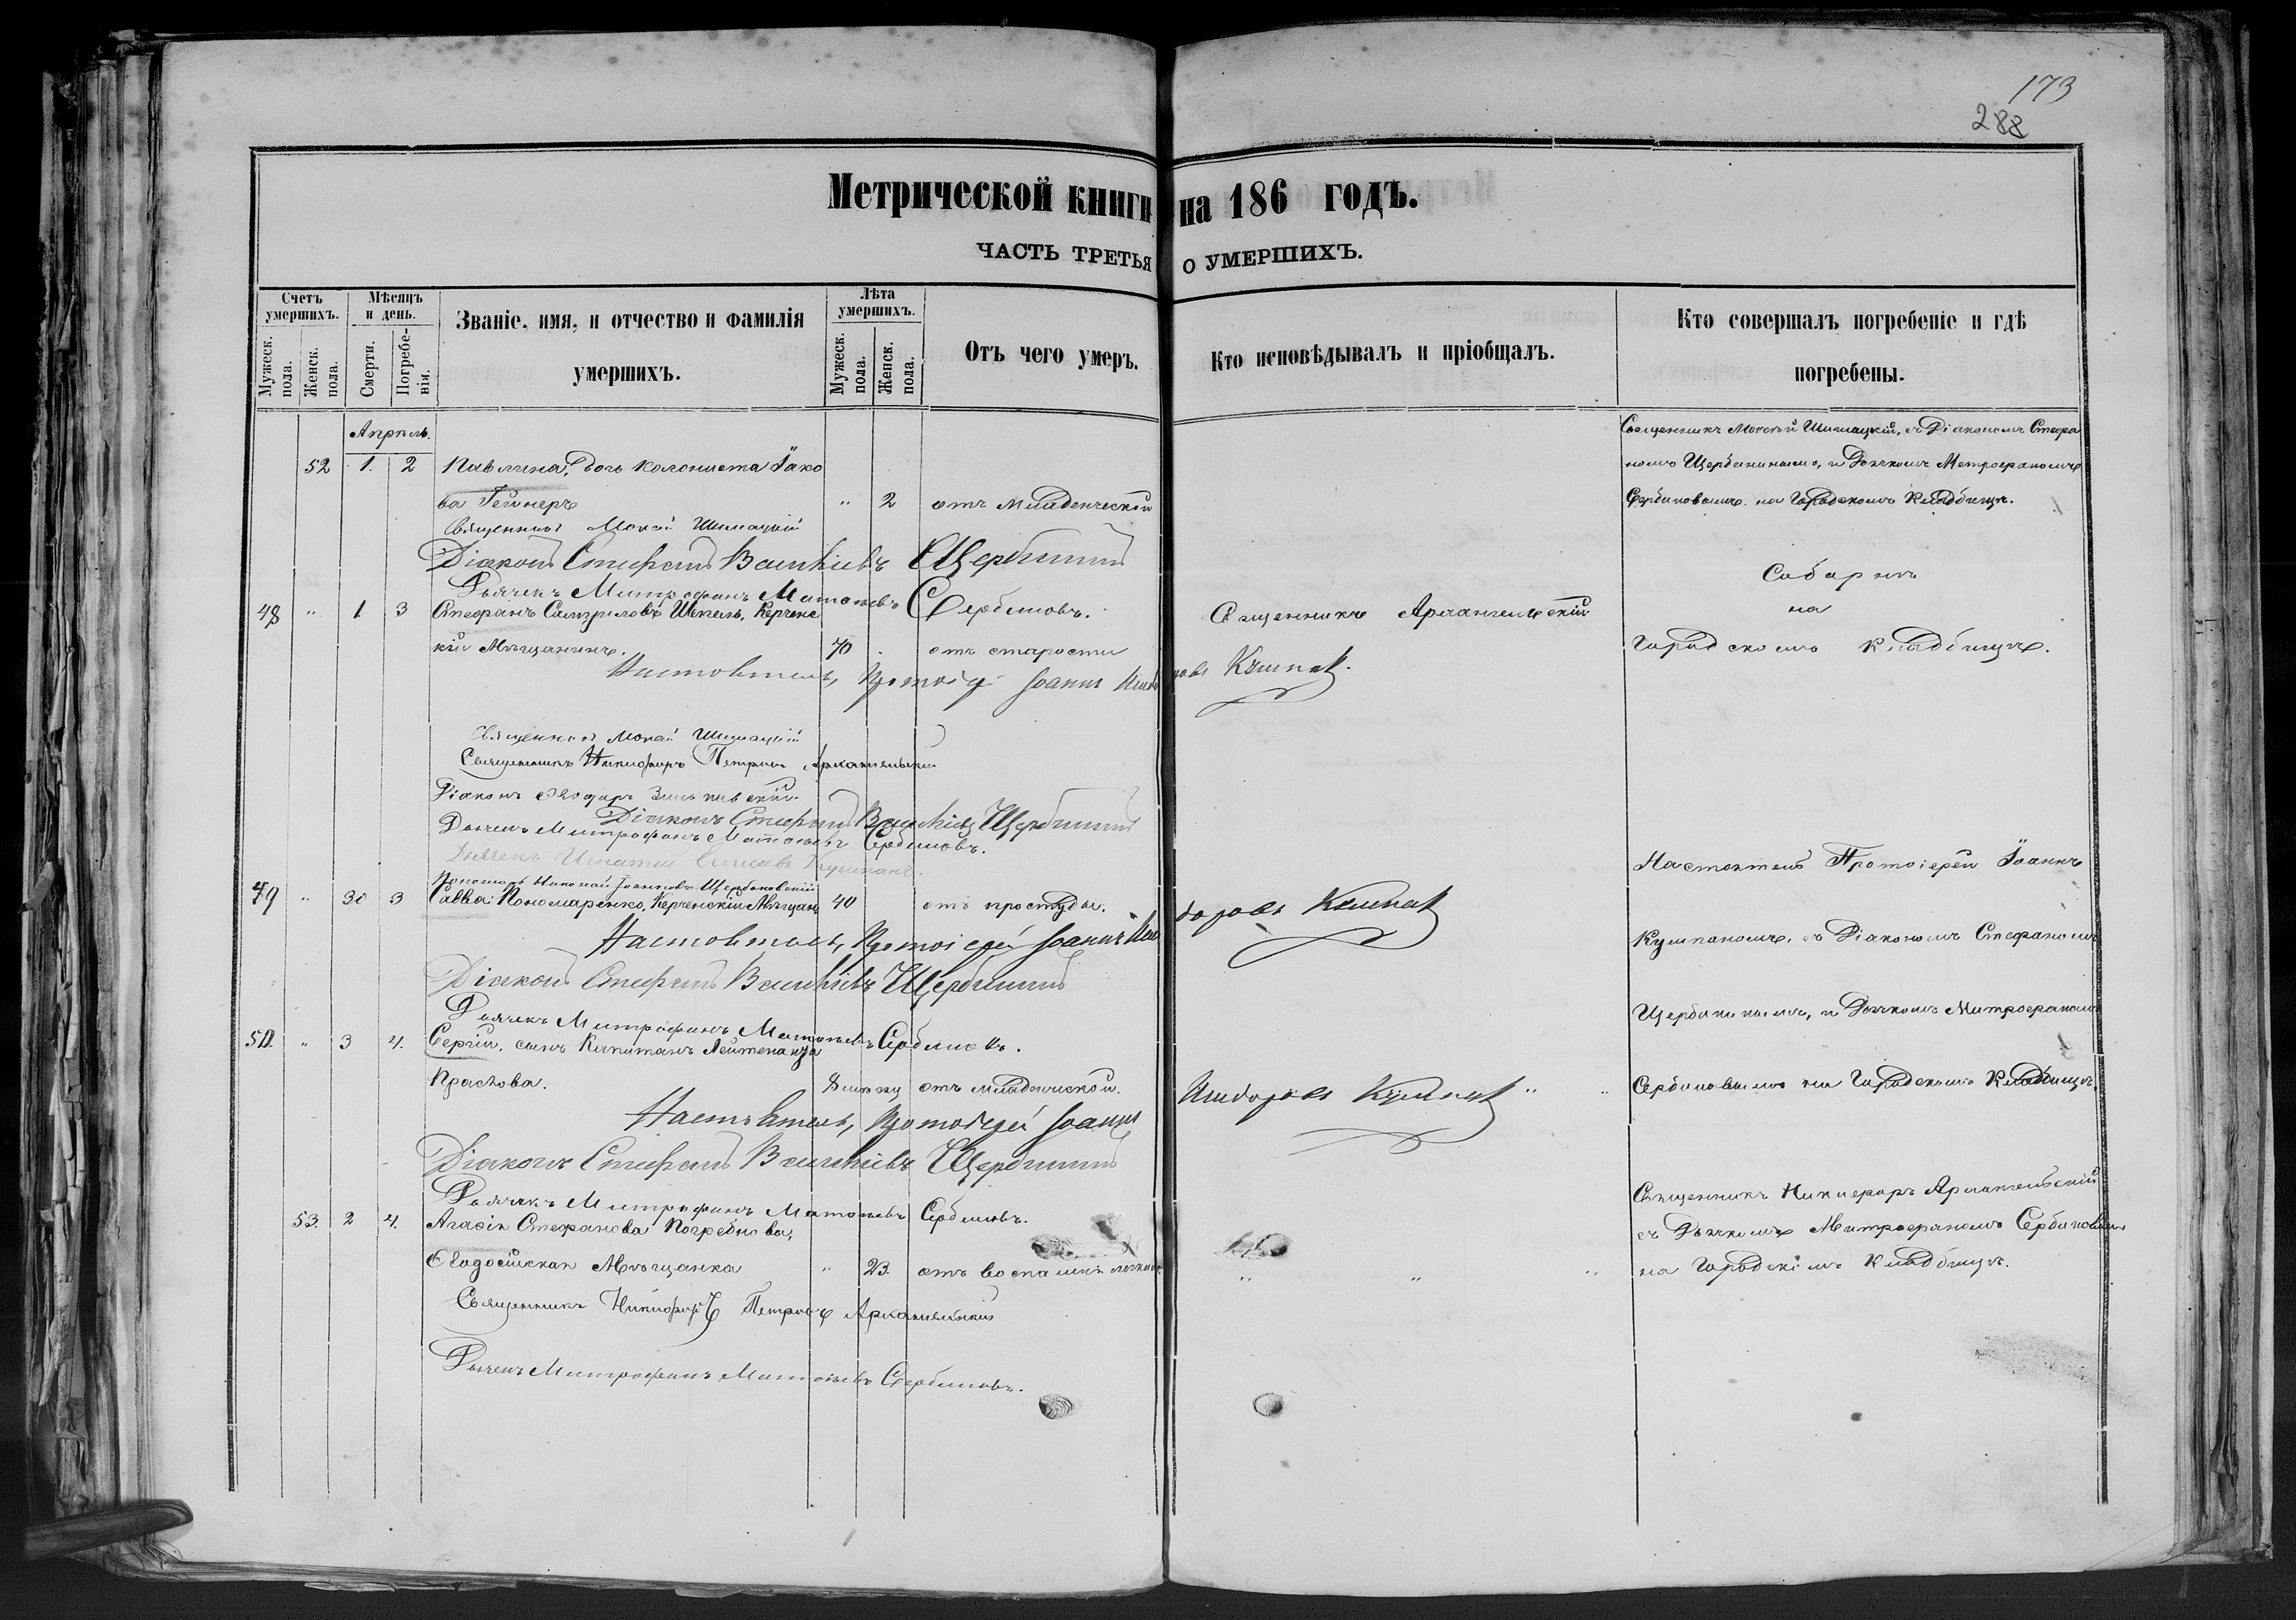 173
288
Метрической книги на 186 годъ.
ЧАСТЬ ТРЕТЬЯ О УМЕРШИХЪ.
Счетъ умершихъ.
Мужеск. пола.
Женск. пола.
Мѣсяцъ и день.
Смерти.
Погребенія.
Званіе, имя, и отчество и фамилія умершихъ.
Лѣта умершихъ.
Мужеск. пола.
Женск. пола.
Отъ чего умеръ.
Кто исповѣдывалъ и пріобщалъ.
Кто совершалъ погребеніе и гдѣ погребены.
Апрѣль.
52 1. 2 Павлина, дочь колониста Іако
ва Гейнеръ " 2 отъ младенческой
Священникъ Мокій Шимацкій, съ Діакономъ Стефа
номъ Щербининымъ, и Дьячкомъ Митрофаномъ
Сербиновымъ на Городскомъ Кладбищѣ.
Священникъ Мокій Шимацкій
Діаконъ Стефанъ Щербининъ
Дьячекъ Митрофанъ Сербиновъ.
48 " 1 3 Стефанъ Шпель, Керченс
кій Мѣщанинъ. 70 отъ старости
Священникъ Архангельскій
Соборнѣ
на
Городскомъ Кладбищѣ.
Настоятель, Протоіерей Іоаннъ Кумпанъ.
Священникъ Мокій Шимацкій
Священникъ Никифоръ Петровъ Архангельскій
Діаконъ Ѳеодоръ
Діаконъ Стефанъ Щербининъ
Дьячекъ Митрофанъ Сербиновъ.
Дьячекъ Игнатій
Пономарь Николай Іоанновъ
49 " 30 3 Савва Пономаренко, Керченскій Мѣщан. 40 отъ простуды.
Настоятель, Протоіерей Іоаннъ Кумпанъ
Діаконъ Стефанъ Щербининъ
Дьячекъ Митрофанъ Сербиновъ.
Настоятель Протоіерей Іоаннъ
Кумпаномъ, съ Діакономъ Стефаномъ
Щербининымъ, и Дьячкомъ Митрофаномъ
Сербиновымъ на Городскомъ Кладбищѣ.
50. " 3 4. Сергій, сынъ Капитанъ Лейтенанта
отъ младенческой.
Настоятель, Протоіерей Іоаннъ Кумпанъ
Діаконъ Стефанъ Щербининъ
Дьячекъ Митрофанъ Сербиновъ.
53. 2 4. Агафія Стефанова Погребнова,
Ѳеодосійская Мѣщанка " 23. отъ воспаленія легкихъ " " "
Священникъ Никифоръ Архангельскій
съ Дьячкомъ Митрофаномъ Сербиновымъ
на Городскомъ Кладбищѣ.
Священникъ Никифоръ Петровъ Архангельскій
Дьячекъ Митрофанъ Сербиновъ.